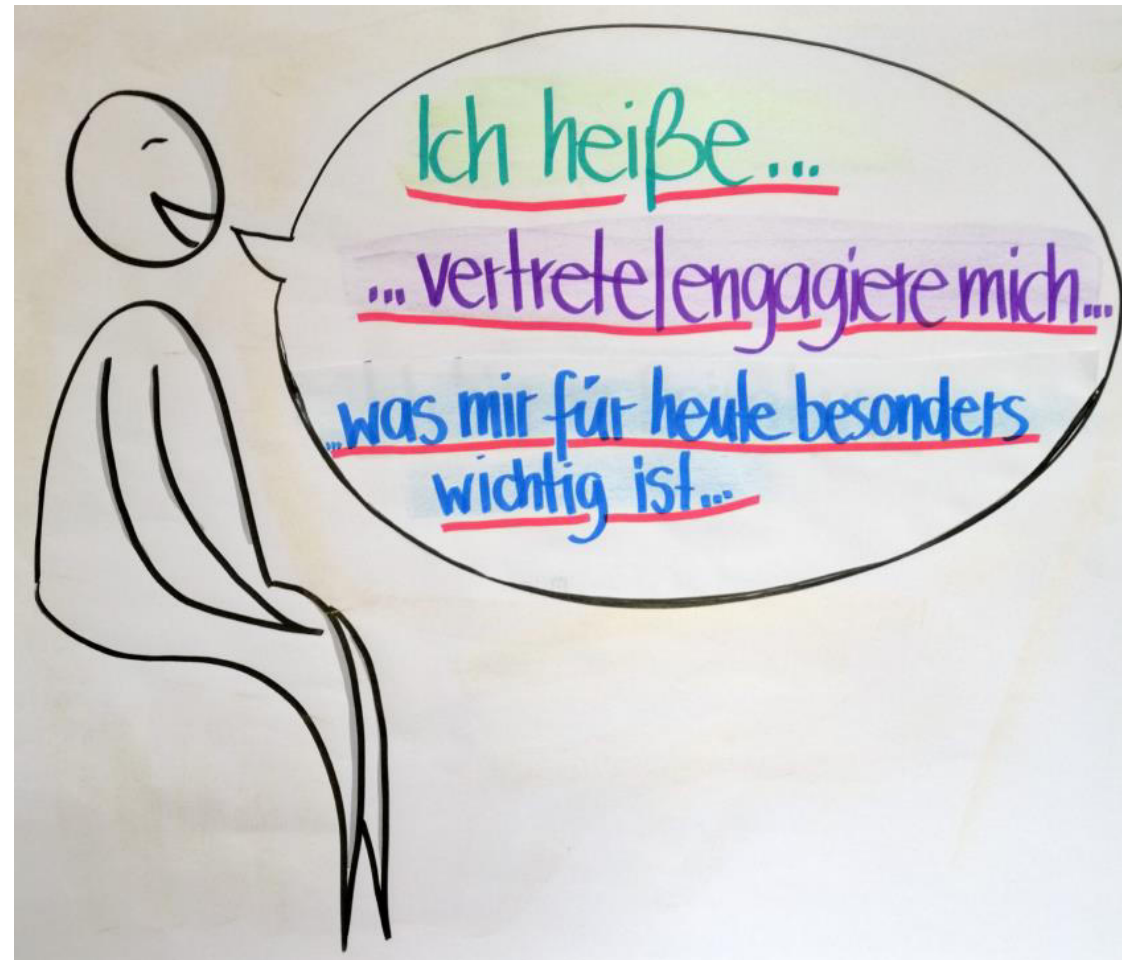 Ich heiße...
... vertrete/engagiere mich...
...was mir für heute besonders
wichtig ist...